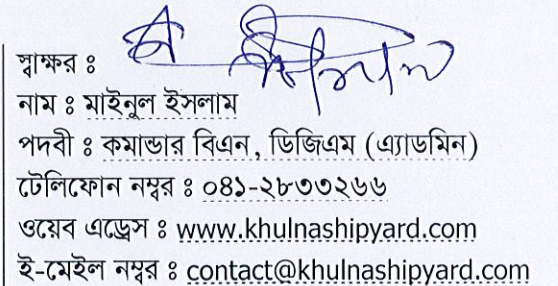 স্বাক্ষর ঃ
নাম ঃ মাইনুল ইসলাম
পদবী ঃ কমান্ডার বিএন, ডিজিএম (এ্যাডমিন)
টেলিফোন নম্বর ঃ ০৪১-২৮৩৩২৬৬
ওয়েব এড্রেস ঃ www.khulnashipyard.com
ই-মেইল নম্বর ঃ contact@khulnashipyard.com